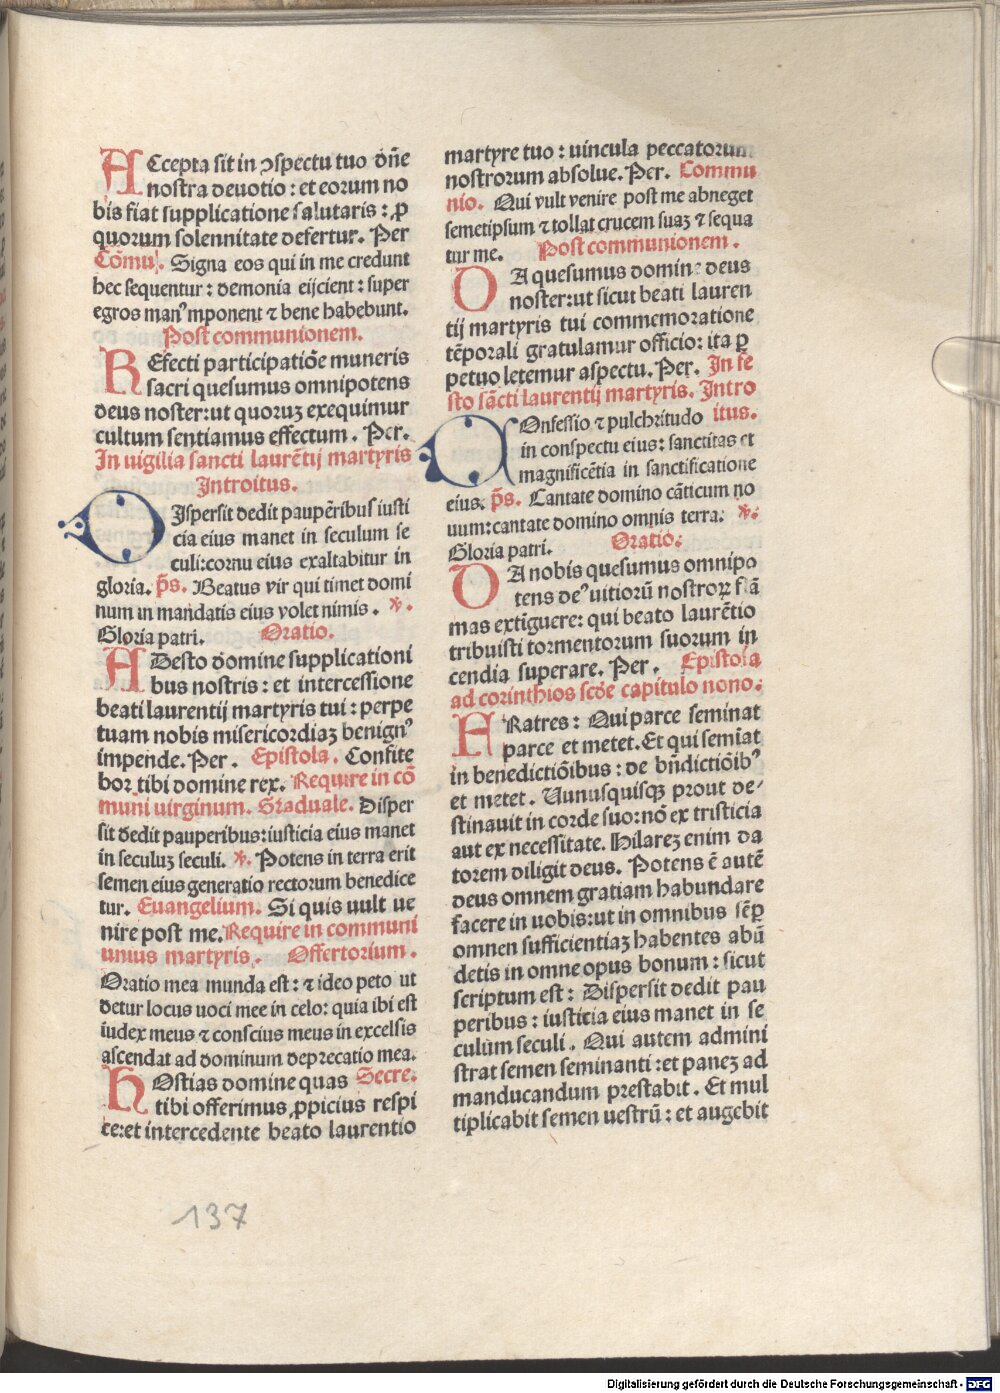 ACcepta sit in ꝯspectu tuo dn̄e
nostra deuotio : et eorum no
bis fiat supplicatione salutaris : ꝓ
quorum solennitate defertur. Per
Cōmu. Signa eos qui in me credunt
hec sequentur : demonia eijcient : super
egros manꝰ imponent ⁊ bene habebunt.
Post communionem.
REfecti participatiōe muneris
sacri quesumus omnipotens
deus noster:ut quoruꝫ exequimur
cultum sentiamus effectum . Per.
In uigilia sancti laurētij martyris
Introitus.
DIspersit dedit paupēribus iusti
cia eius manet in seculum se
culi:cornu eius exaltabitur in
gloria. p̄s. Beatus vir qui timet domi
num in mandatis eius volet nimis . ℣.
Gloria patri. Oratio.
ADesto domine supplicationi
bus nostris : et intercessione
beati laurentij martyris tui : perpe
tuam nobis misericordiaꝫ benignꝰ
impende. Per . Epistola . Confite
bor tibi domine rex. Require in cō
muni uirginum. Graduale. Disper
sit dedit pauperibus:iusticia eius manet
in seculuꝫ seculi. ℣. Potens in terra erit
semen eius generatio rectorum benedice
tur. Euangelium. Si quis uult ue
nire post me. Require in communi
unius martyris. Offertorium.
Oratio mea munda est : ⁊ ideo peto ut
detur locus uoci mee in celo: quia ibi est
iudex meus ⁊ conscius meus in excelsis
ascendat ad dominum deprecatio mea.
HOstias domine quas Secre.
tibi offerimus ꝓpicius respi
ce:et intercedente beato laurentio
martyre tuo : uincula peccatorum
nostrorum absolue. Per. Commu
nio. Qui vult venire post me abneget
semetipsum ⁊ tollat crucem suaꝫ ⁊ sequa
tur me. Post communionem .
DA quesumus domine deus
noster:ut sicut beati lauren
tij martyris tui commemoratione
tēporali gratulamur officio: ita ꝑ
petuo letemur aspectu. Per. In fe
sto sācti laurentij martyris. Intro
COnfessio ⁊ pulchritudo itus.
in conspectu eius: sanctitas et
magnificētia in sanctificatione
eius. p̄s. Cantate domino cāticum no
uum:cantate domino omnis terra. ℣.
Gloria patri. Oratio.
DA nobis quesumus omnipo
tens deꝰ uitiorū nostroꝝ flā
mas extīguere: qui beato laurētio
tribuisti tormentorum suorum in
cendia superare. Per . Epistola
ad corinthios scd̄e capitulo nono.
FRatres : Qui parce seminat
parce et metet. Et qui semīat
in benedictiōibus : de bn̄dictiōibꝰ
et metet . Vnusquisqꝫ prout de-
stinauit in corde suo:nō ex tristicia
aut ex necessitate. Hilareꝫ enim da
torem diligit deus. Potens ē autē
deus omnem gratiam habundare
facere in uobis:ut in omnibus sēꝑ
omnen sufficientiaꝫ habentes abū
detis in omne opus bonum : sicut
scriptum est : Dispersit dedit pau
peribus : iusticia eius manet in se
culum seculi . Qui autem admini
strat semen seminanti :et paneꝫ ad
manducandum prestabit . Et mul
tiplicabit semen uestrū : et augebit
137
Digitalisierung gefördert durch die Deutsche Forschungsgemeinschaft - DFG